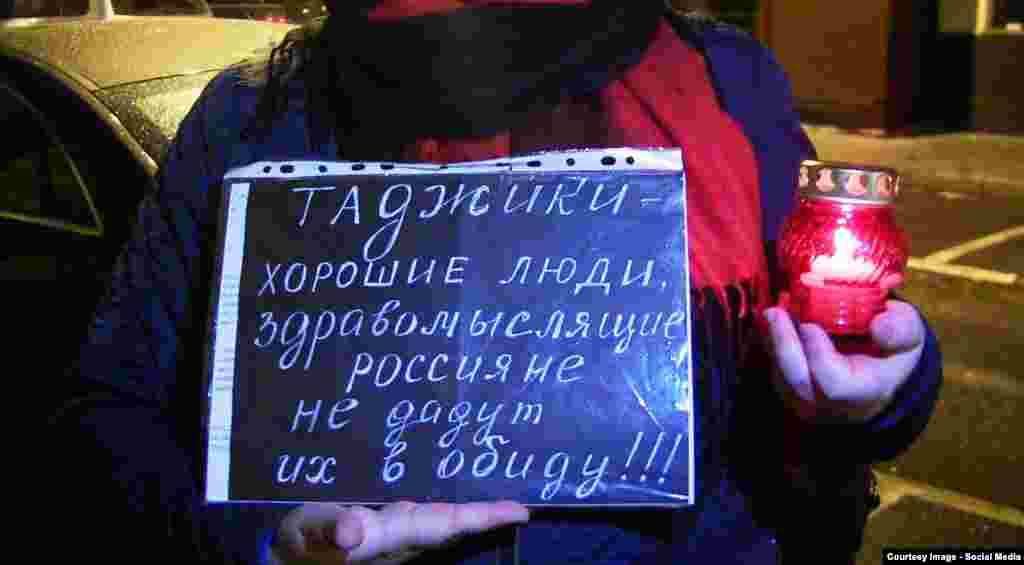 ТАДЖИКИ -
ХОРОШИЕ ЛЮДИ,
здравомыслящие
РОССИЯНЕ
НЕ дадут
их в обиду!!!
Courtesy Image - Social Media